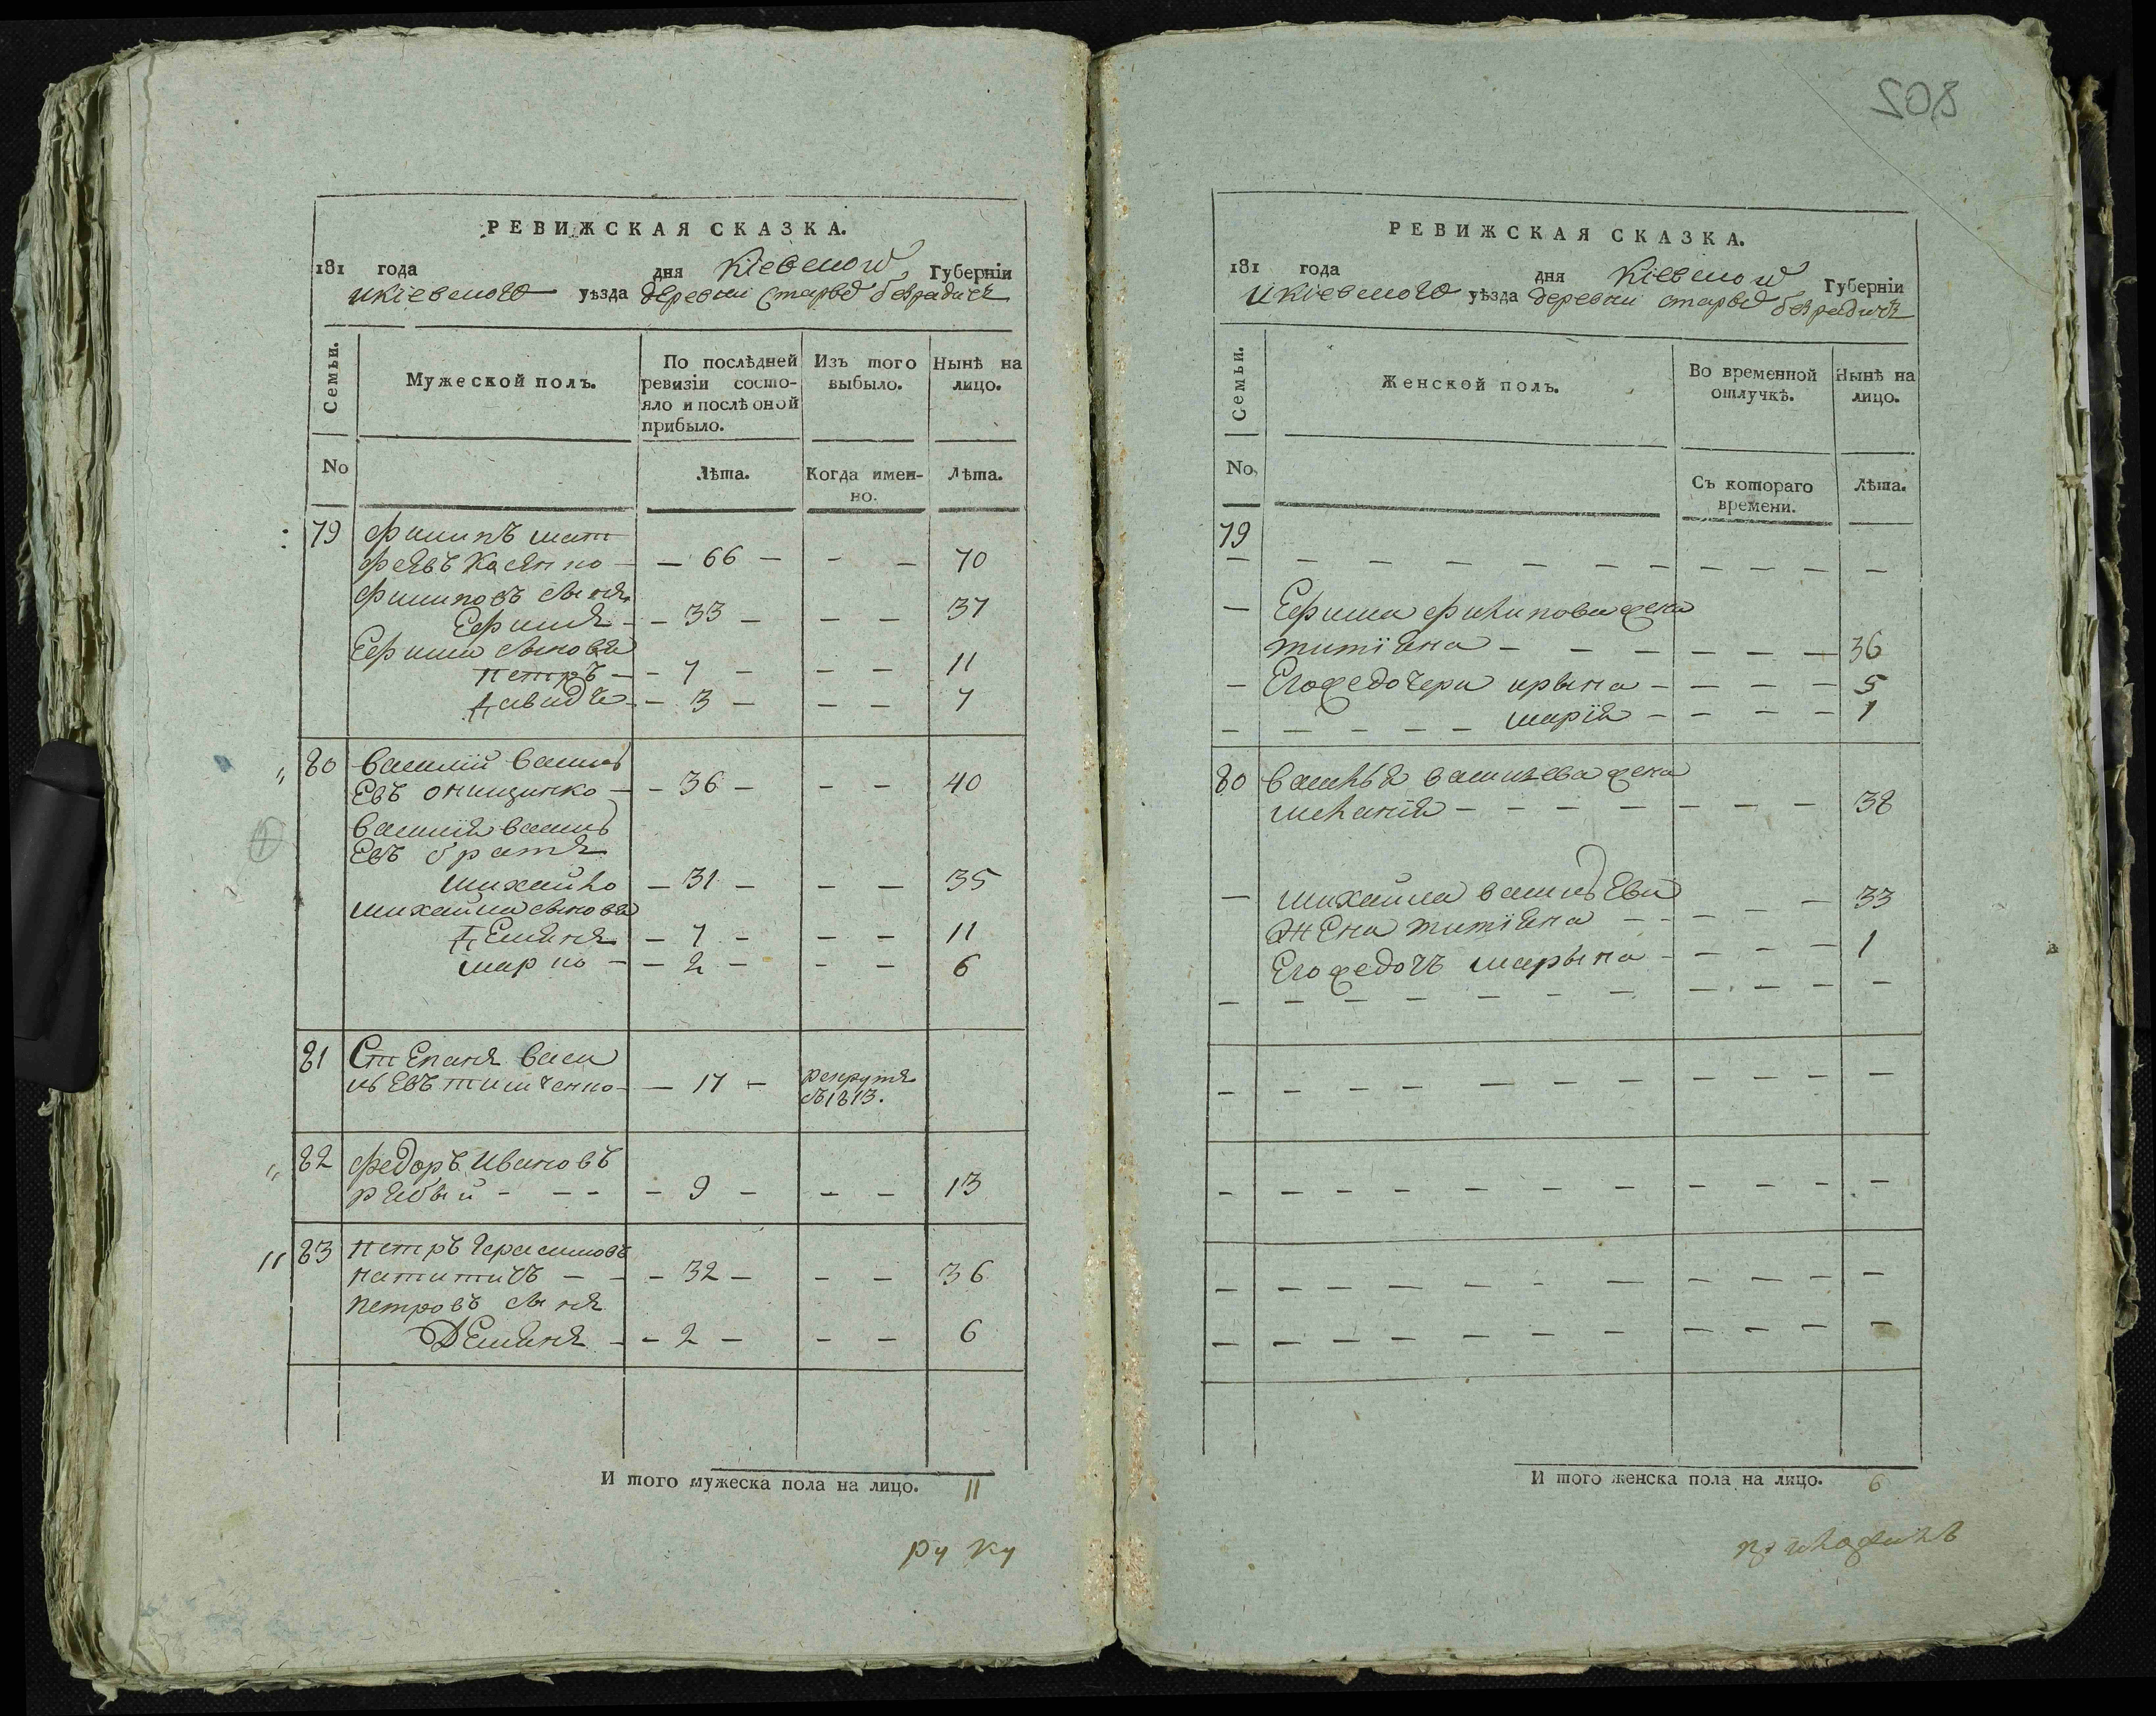 РЕВИЖСКАЯ СКАЗКА.
181 года дня Кіевской Губерніи
и Кіевского уѣзда деревни Старыхъ безрадичъ
Семьи. Мужеской полъ. По послѣдней ревизіи состояло и послѣ оной прибыло. Изъ того выбыло. Нынѣ на лицо.
No Лѣта. Когда именно. Лѣта.
79 Филипъ мат
фѣевъ Касянко — 66 — — — 70
Филиповъ сынъ
Ефимъ — 33 — — — 37
Ефима сыновя
петръ — 7 — — — 11
Давидъ — 3 — — — 7
80 василій василь
евъ онищинко — 36 — — — 40
василія василь
евъ братъ
михайло — 31 — — — 35
михайла сыновя
Демянъ — 7 — — — 11
марко — 2 — — — 6
81 Степанъ васи
льевъ тимченко — 17 — рекрутъ
въ 1813.
82 федоръ Ивановъ
рябый — — — 9 — — — 13
83 петръ герасимовъ
— — 32 — — — 36
петровъ сынъ
Демянъ — 2 — — — 6
И того мужеска пола на лицо. 11
ру ку
208
РЕВИЖСКАЯ СКАЗКА.
181 года дня Кіевской Губерніи
и Кіевского уѣзда деревни старыхъ безрадичъ
Семьи. Женской полъ. Во временной отлучкѣ. Нынѣ на лицо.
No Съ котораго времени. Лѣта.
79
— Ефима филипова жена
титіяна — — — — — — 36
— Его же дочери ирына — — — — 5
марія — — — — 1
80 василья васильева жена
меланія — — — — — — — 38
— михайла васильева — 33
жена титіяна — — — — —
Его же дочь марына — — — — 1
И того женска пола на лицо. 6
приложилъ